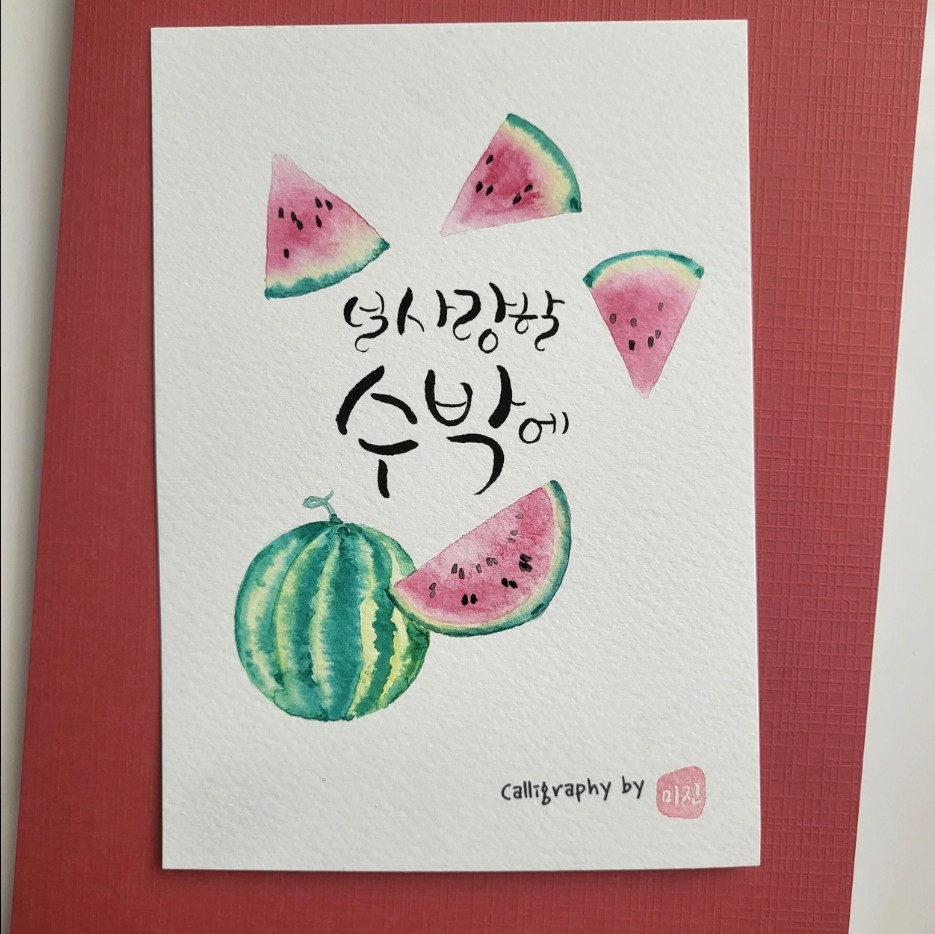 널사랑할
수박에
Calligraphy by 미진